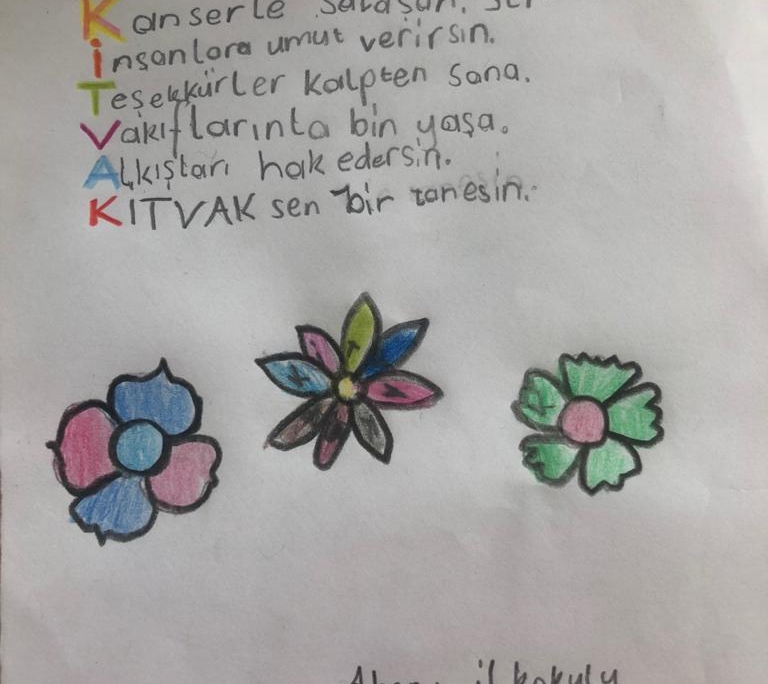 Kanserle savaşan,
İnsanlara umut verirsin.
Teşekkürler kalpten sana.
Vakıflarınla bin yaşa.
Alkışları hak edersin.
KITVAK sen bir tanesin.
ilkokulu